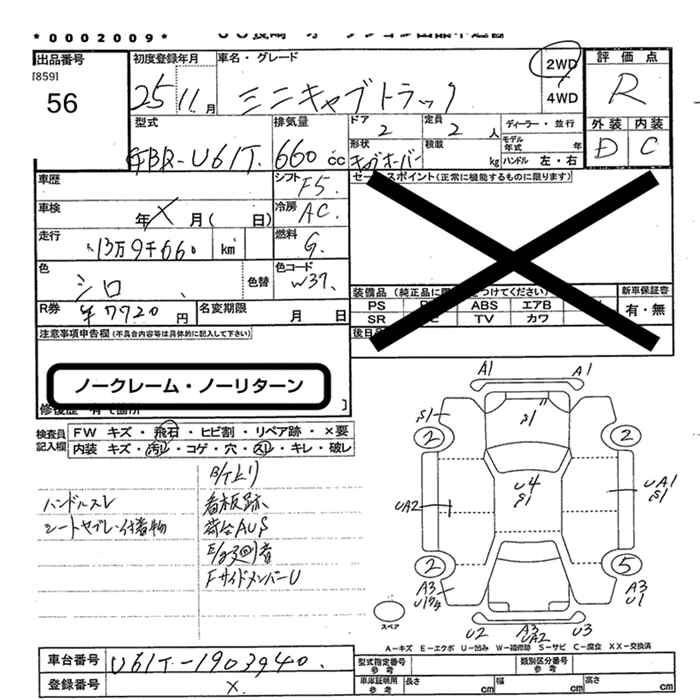 *0002009*
出品番号
[859]
56
初度登録年月
25 11 月
車名・グレード
ミニキャブトラック
2WD
4WD
評価点
R
外装 内装
D C
型式
GBR-U61T.
排気量
660 cc
ドア
2
定員
2 人
形状
キャブオーバー
積載
kg
ディーラー・並行
モデル年式 年
ハンドル 左・右
車歴
シフト
F5.
セールスポイント(正常に機能するものに限ります)
車検
年 X 月 ( 日)
冷房
AC.
走行
13万9千660 km
燃料
G.
色
シロ
色替
色コード
W37.
装備品 (純正品に限
つけてください)
新車保証書
PS
ABS エアB
有・無
SR
TV カワ
R券
¥7720 円
名変期限
月 日
後日
注意事項申告欄(不具合内容等は具体的に記入して下さい)
ノークレーム・ノーリターン
検査員記入欄
FW キズ・飛石・ヒビ割・リペア跡・×要
内装 キズ・汚レ・コゲ・穴・スレ・キレ・破レ
B/T上り
ハンドルスレ
看板跡
シートヤブレ・付着物
荷台AUS
FサイドメンバーU
A1 A1
S1 S1
2 2
U4
S1
UA2
UA1
S1
2 5
A3
A3
U1
スペア
U2 A3 U3
UA2
A-キズ E-エクボ U-凹み W-補修跡 S-サビ C-腐食 XX-交換済
車台番号
U61T-1903940.
登録番号
X.
型式指定番号
参考
類別区分番号
参考
車庫証明用
参考
長さ cm
幅 cm
高さ cm